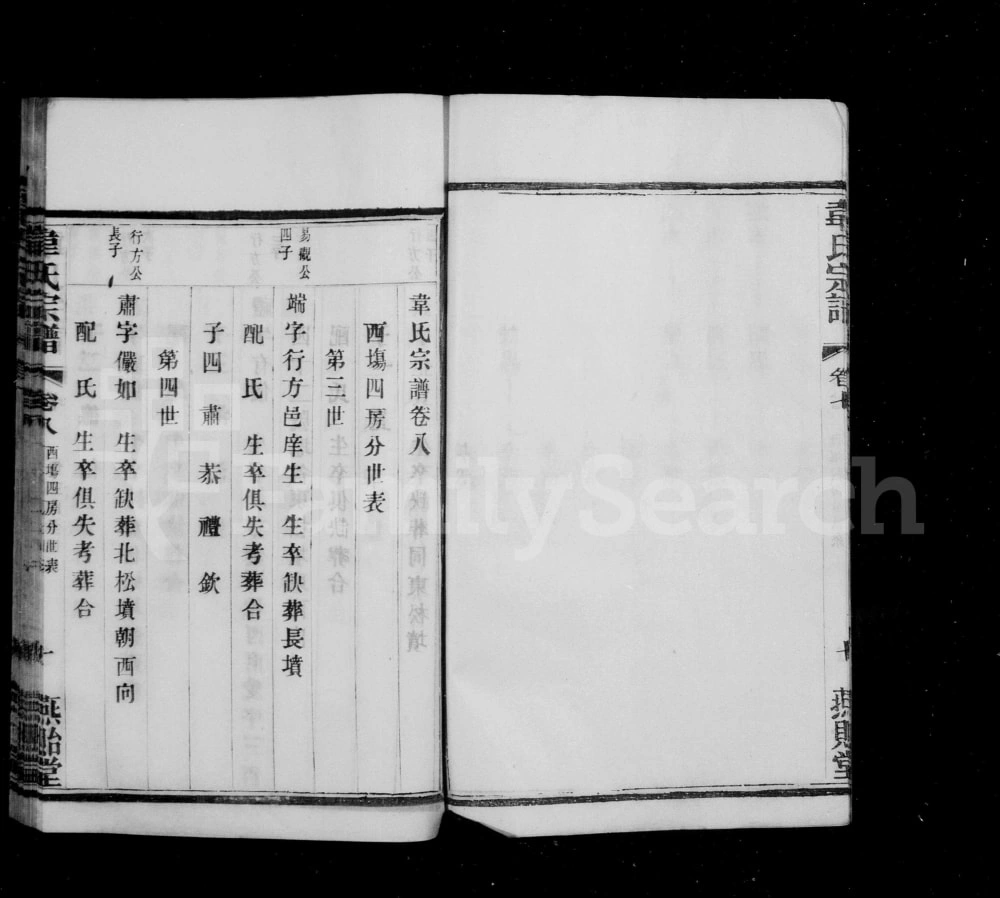 韋氏宗譜
卷七
十
燕貽堂
韋氏宗譜卷八
西塲四房分世表
第三世
易觀公
四子
端字行方邑庠生 生卒缺葬長墳
配 氏 生卒俱失考葬合
子四 肅 恭 禮 欽
第四世
行方公
長子
肅字儼如 生卒缺葬北松墳朝西向
配 氏 生卒俱失考葬合
韋氏宗譜
卷八
西塲四房分世表
一
燕貽堂
FamilySearch